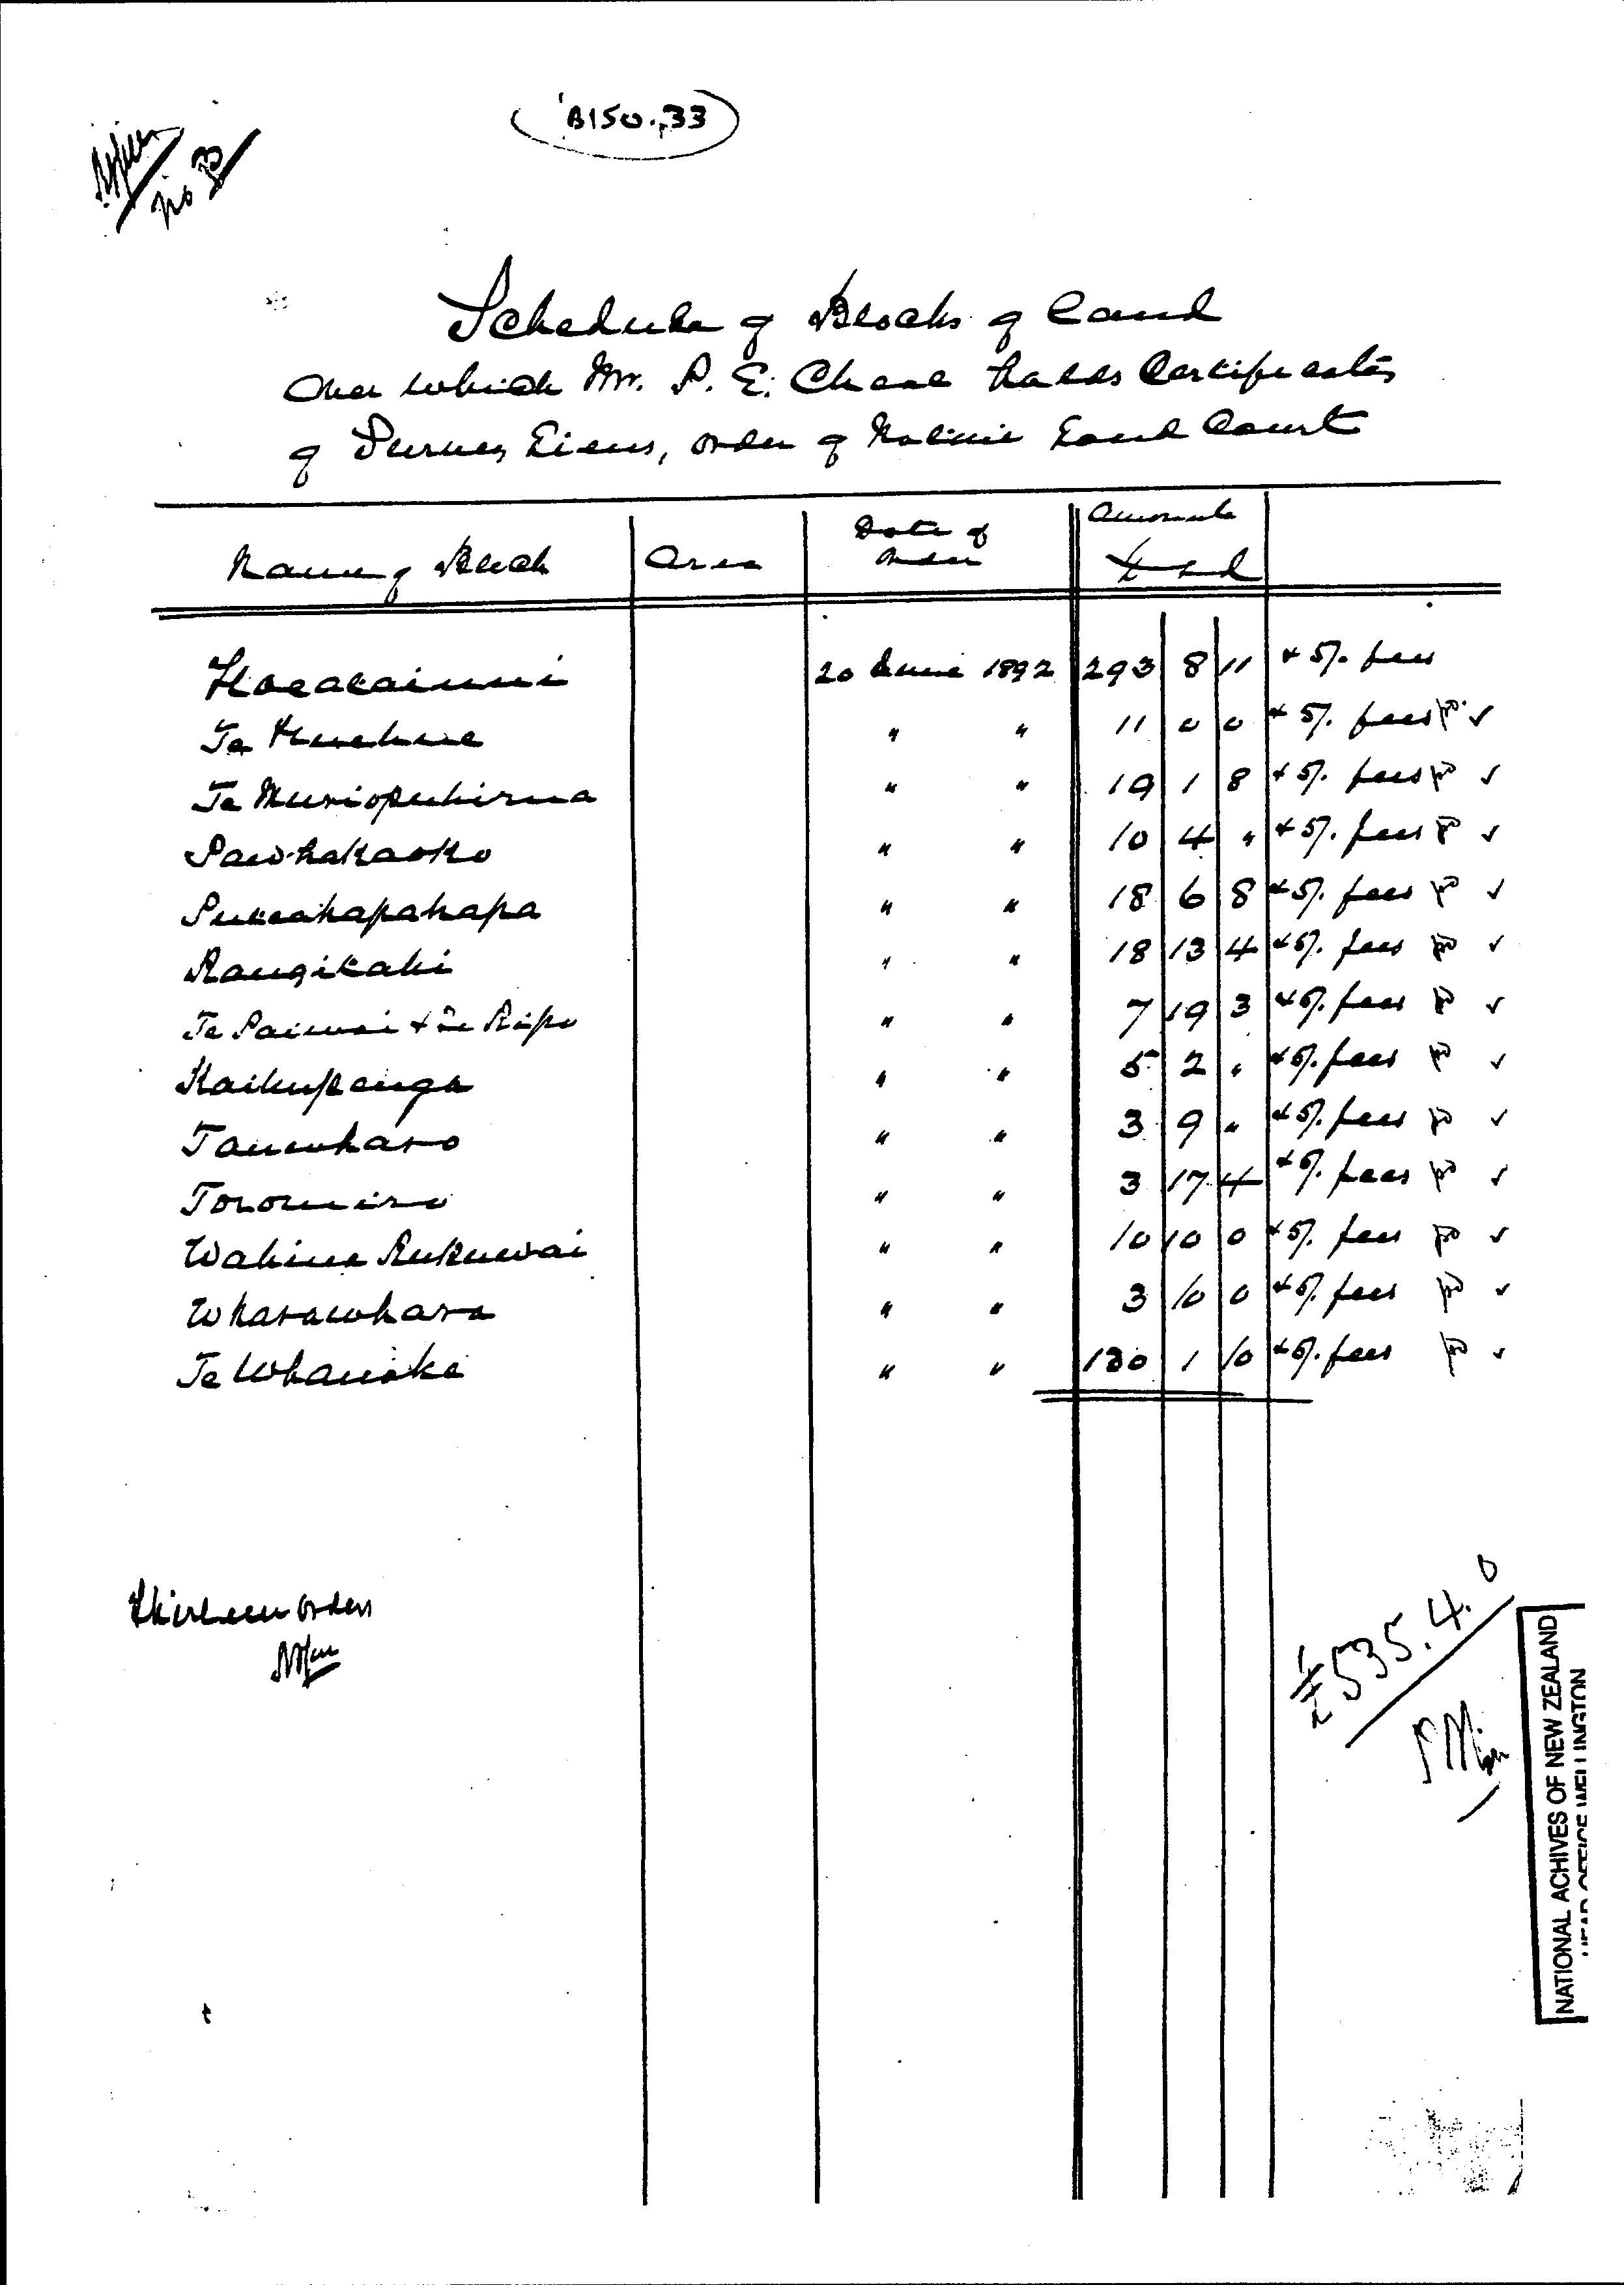 B150.33
No B
Schedule of Blocks of Land
Over which Mr. P. E. Cheal holds Certificates
of Survey Liens, order of Native Land Court
Name of Block Area Date of Order Amounts £ s d
20 June 1892 293 8 11 + 5/. fees
Te Huehue " " 11 0 0 + 5/. fees ✓
Te Muriopuhirua " " 19 1 8 + 5/. fees ✓
Pawhakaoko " " 10 4 " + 5/. fees ✓
Pukeahapahapa " " 18 6 8 + 5/. fees ✓
Rangitahi " " 18 13 4 + 5/. fees ✓
Te Paiwai + Te Ripo " " 7 19 3 + 5/. fees ✓
Kaikupenga " " 5 2 " + 5/. fees ✓
Tauwharo " " 3 9 " + 5/. fees ✓
Toromiro " " 3 17 4 + 5/. fees ✓
Wahine Rukuwai " " 10 10 0 + 5/. fees ✓
Wharawhara " " 3 10 0 + 5/. fees ✓
Te Whanake " " 130 1 10 + 5/. fees ✓
Thirteen orders
£535.4.0
NATIONAL ACHIVES OF NEW ZEALAND
HEAD OFFICE WELLINGTON